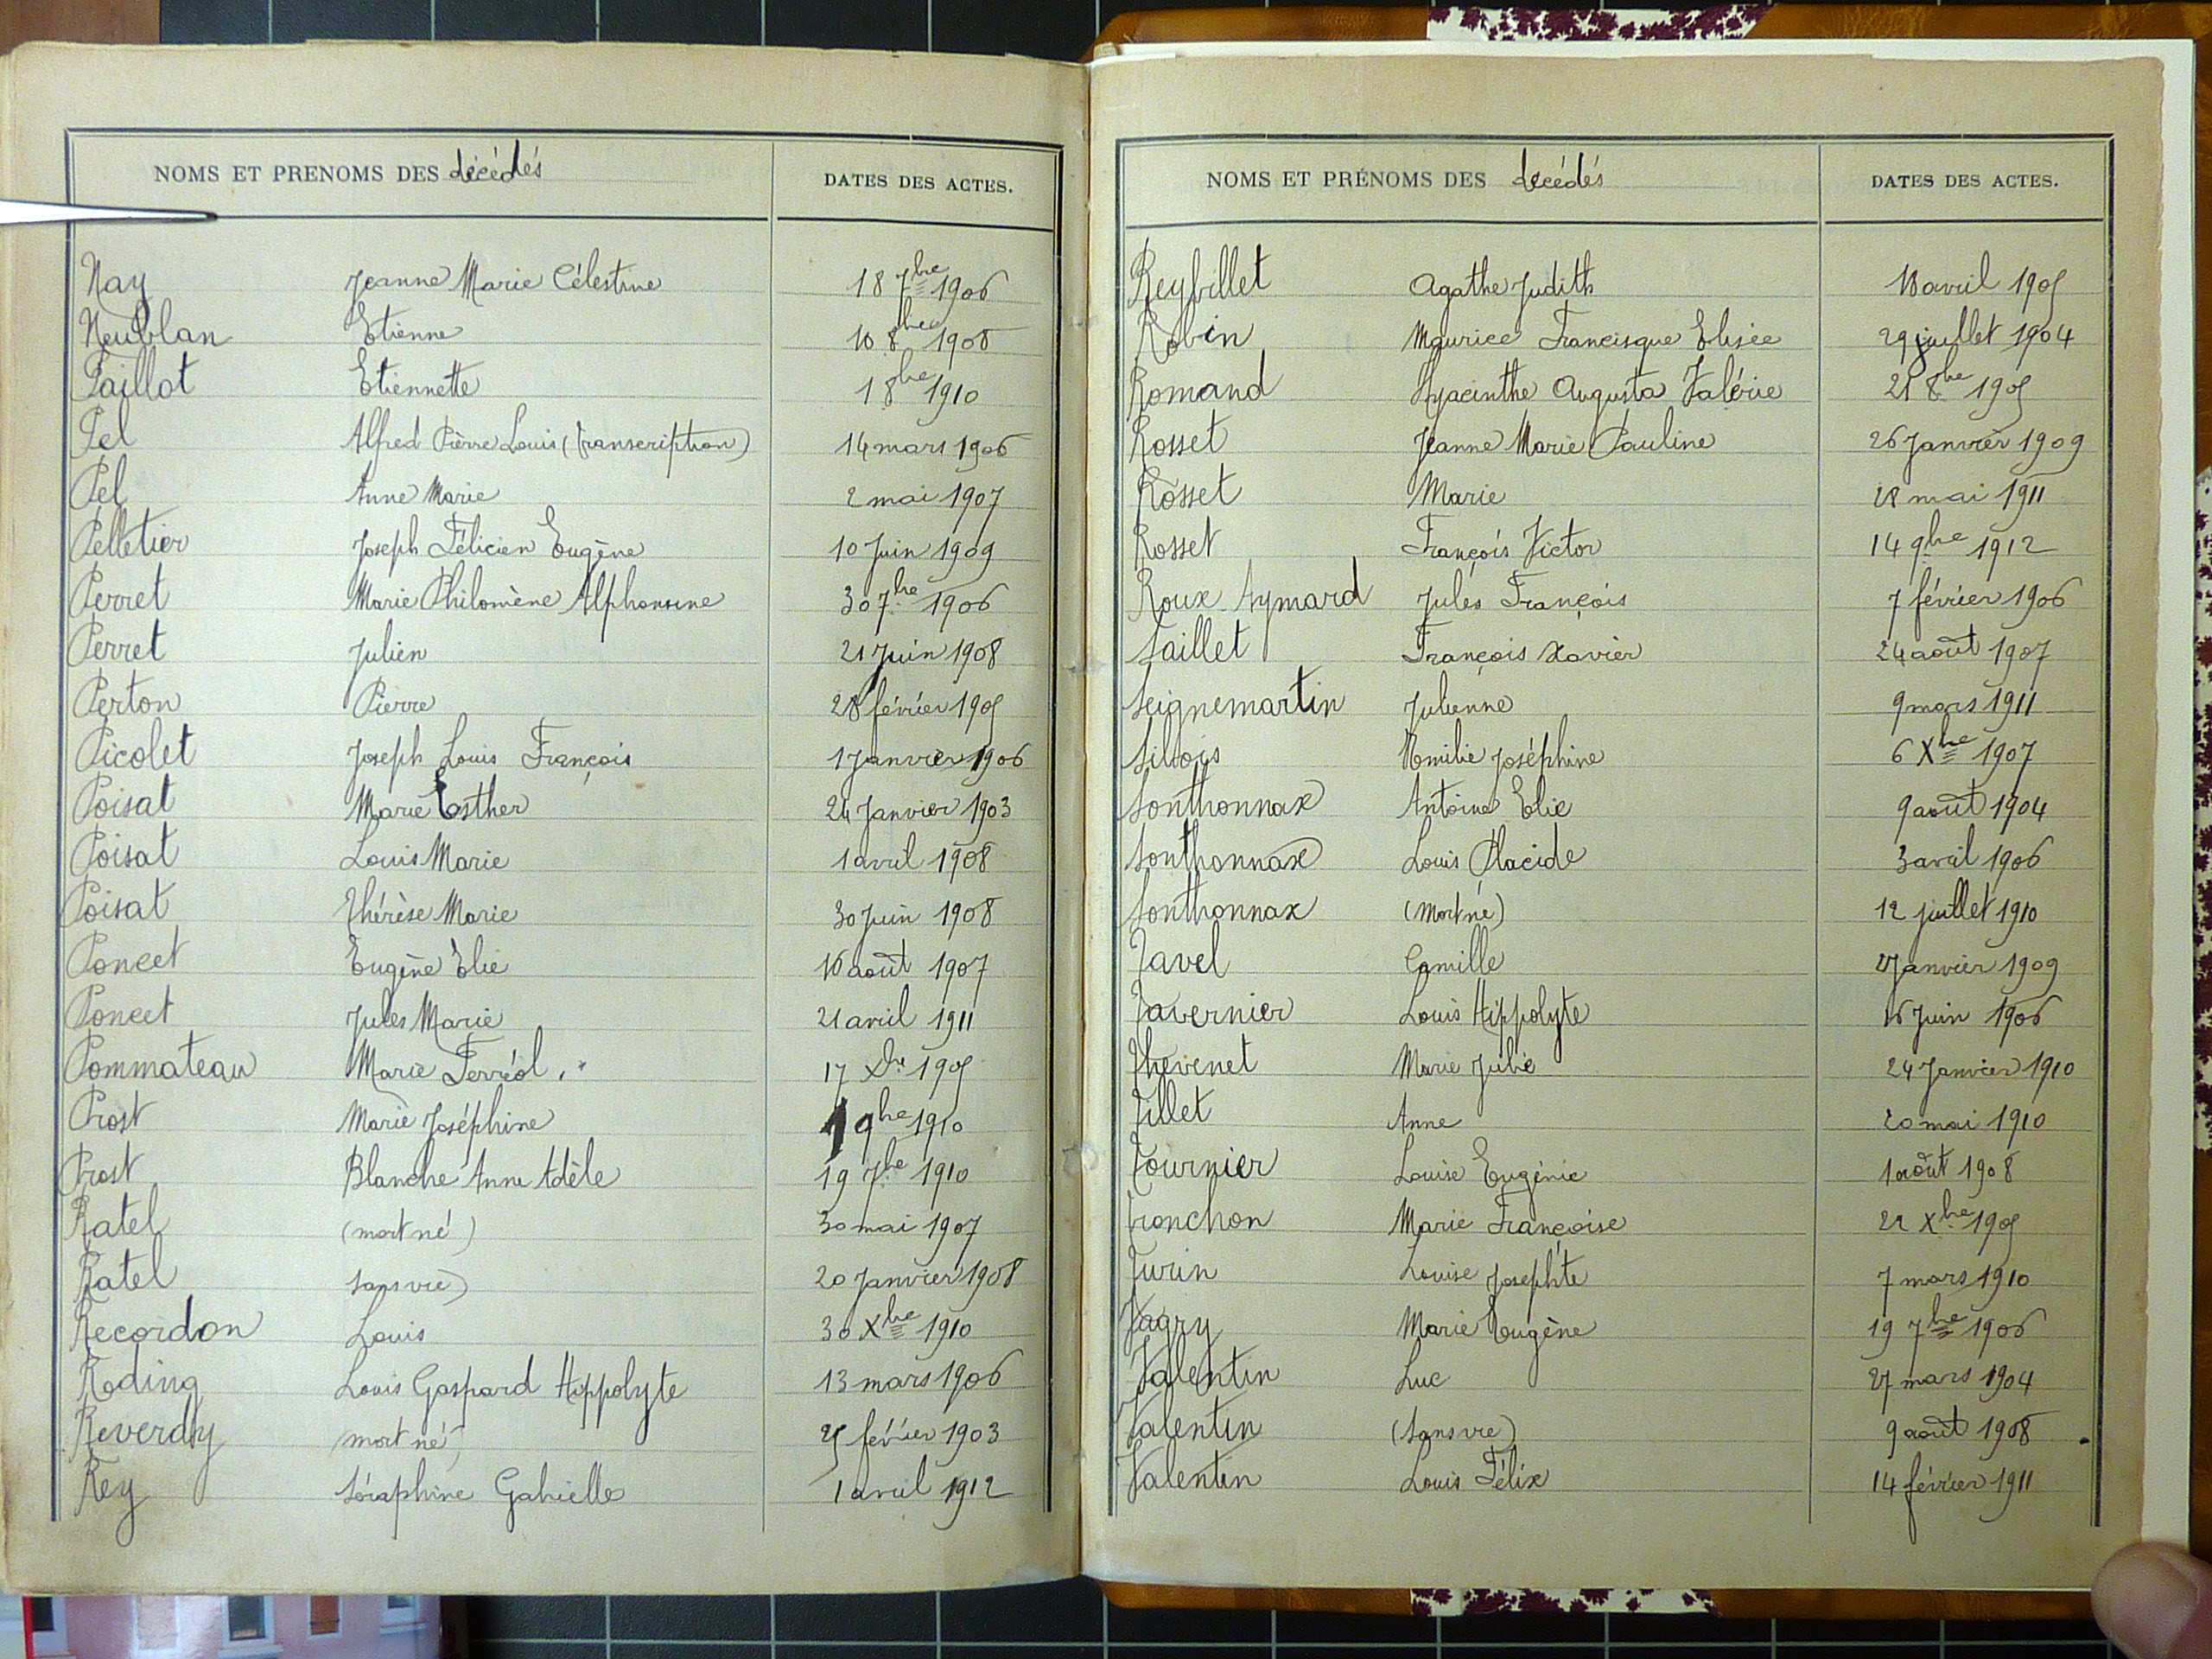 NOMS ET PRENOMS DES décédés DATES DES ACTES.
Nay Jeanne Marie Célestine 18 7bre 1906
Neublan Etienne 10 8bre 1908
Paillot Etiennette 1 8bre 1910
Pel Alfred Pierre Louis (transcription) 14 mars 1906
Pel Anne Marie 2 mai 1907
Pelletier Joseph Félicien Eugène 10 Juin 1909
Perret Marie Philomène Alphonsine 30 7bre 1906
Perret Julien 21 Juin 1908
Perton Pierre 28 février 1905
Picolet Joseph Louis François 1 Janvier 1906
Poisat Marie Esther 24 Janvier 1903
Poisat Louis Marie 1 avril 1908
Poisat Thérèse Marie 30 Juin 1908
Poncet Eugène Elie 16 août 1907
Poncet Jules Marie 21 avril 1911
Pommateau Marie Ferréol 17 Xbre 1905
Prost Marie Joséphine 1 9bre 1910
Prost Blanche Anne Adèle 19 7bre 1910
Ratel (mort né) 30 mai 1907
Ratel sans vie) 20 Janvier 1908
Recordon Louis 30 Xbre 1910
Reding Louis Gaspard Hippolyte 13 mars 1906
Reverdy mort né) 25 février 1903
Rey Séraphine Gabrielle 1 avril 1912
NOMS ET PRÉNOMS DES décédés DATES DES ACTES.
Reybillet Agathe Judith 18 avril 1905
Robin Maurice Francisque Elisée 29 juillet 1904
Romand Hyacinthe Augusta Valérie 21 8bre 1905
Rosset Jeanne Marie Pauline 26 Janvier 1909
Rosset Marie 28 mai 1911
Rosset François Victor 14 9bre 1912
Roux Aymard Jules François 7 février 1906
Saillet François Xavier 24 août 1907
Seignemartin Julienne 9 mars 1911
Silvois Emilie Joséphine 6 Xbre 1907
Sonthonnax Antoine Elie 9 août 1904
Sonthonnax Louis Placide 3 avril 1906
Sonthonnax (Mort né) 12 juillet 1910
Tavel Camille Janvier 1909
Tavernier Louis Hippolyte 16 Juin 1906
Thevenet Marie Julie 24 Janvier 1910
Tillet Anne 20 mai 1910
Tournier Louise Eugénie 1 août 1908
Tronchon Marie Françoise 22 Xbre 1905
Turin Louise Josephte 7 mars 1910
Vagry Marie Eugène 19 7bre 1906
Valentin Luc 27 mars 1904
Valentin (sans vie) 9 août 1908
Valentin Louis Félix 14 février 1911